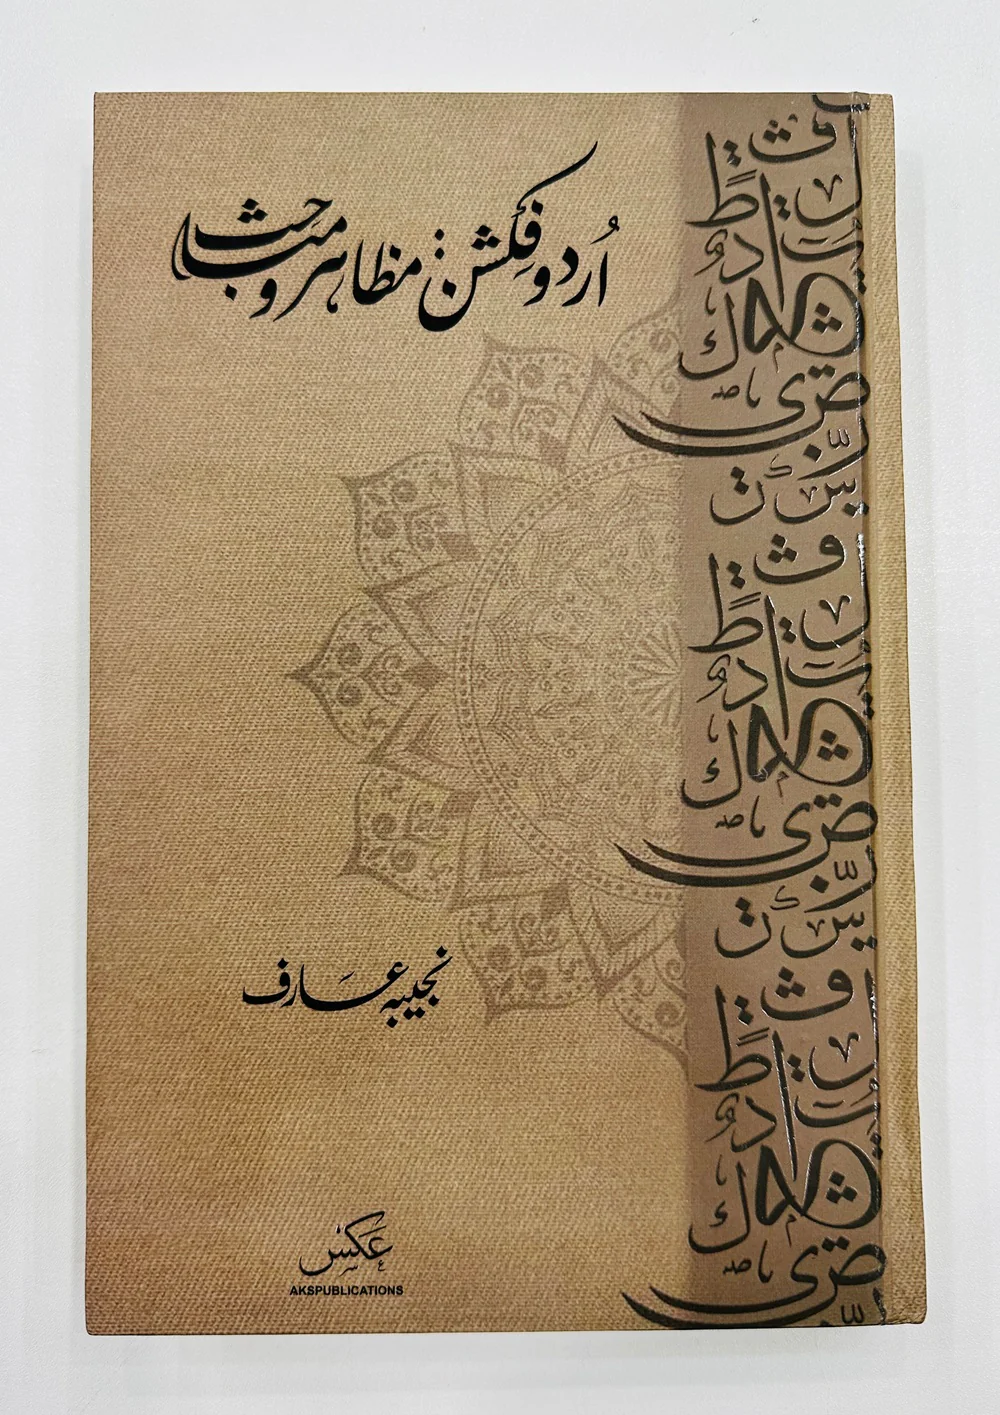 اُردو فکشن: مظاہر و مباحث
نجیبہ عارف
عکس
AKSPUBLICATIONS